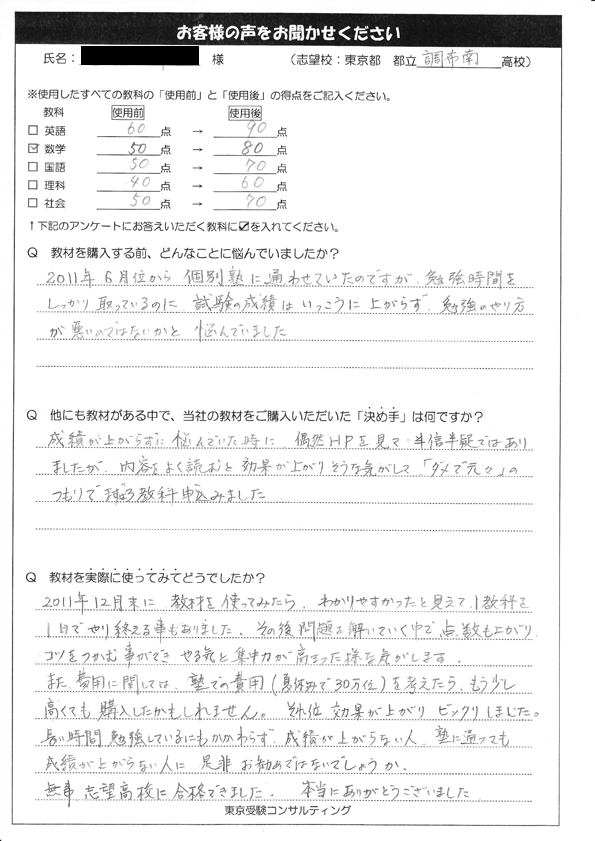 お客様の声をお聞かせください
氏名： 様 （志望校：東京都 都立 調布南 高校）
※使用したすべての教科の「使用前」と「使用後」の得点をご記入ください。
教科 使用前 使用後
□ 英語 60 点 → 90 点
☑ 数学 50 点 → 80 点
□ 国語 50 点 → 70 点
□ 理科 40 点 → 60 点
□ 社会 50 点 → 70 点
↑下記のアンケートにお答えいただく教科に☑を入れてください。
Q 教材を購入する前、どんなことに悩んでいましたか？
2011年6月位から 個別塾に通わせていたのですが、勉強時間を
しっかり取っているのに 試験の成績は いっこうに上がらず、勉強のやり方
が悪いのではないかと 悩んでいました
Q 他にも教材がある中で、当社の教材をご購入いただいた「決め手」は何ですか？
成績が上がらずに悩んでいた時に 偶然HPを見て 半信半疑ではあり
ましたが、内容をよく読むと効果が上がりそうな気がして「ダメで元々」の
つもりで 教科申込みました
Q 教材を実際に使ってみてどうでしたか？
2011年12月末に 教材を使ってみたら、わかりやすかったと見えて、1教科を
1日でやり終える事もありました、その後問題を解いていく中で点数も上がり、
コツをつかむ事ができ やる気と集中力が高まった様な気がします。
また、費用に関しては、塾での費用（夏休みで30万位）を考えたら、もう少し
高くても購入したかもしれません。それ位 効果が上がり ビックリしました。
長い時間勉強しているにもかかわらず、成績が上がらない人、塾に通っても
成績が上がらない人に 是非お勧めではないでしょうか、
無事 志望高校に合格できました。 本当にありがとうございました
東京受験コンサルティング